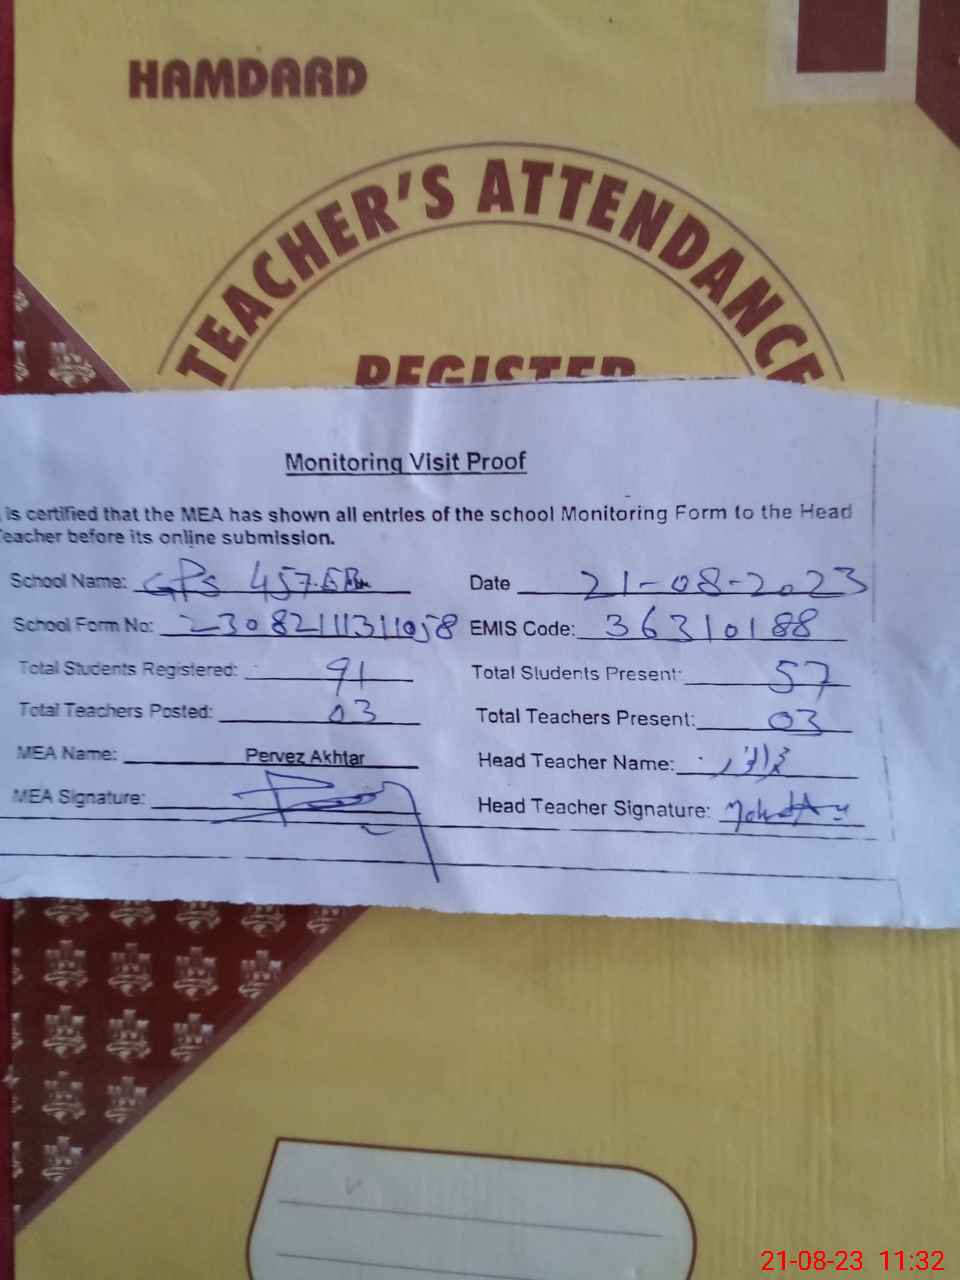 HAMDARD
TEACHER'S ATTENDANCE
REGISTER
Monitoring Visit Proof
is certified that the MEA has shown all entries of the school Monitoring Form to the Head
eacher before its online submission.
School Name: GPS 457.EB Date 21-08-2023
School Form No: 2308211131058 EMIS Code: 36310188
Total Students Registered: 91 Total Students Present: 57
Total Teachers Posted: 03 Total Teachers Present: 03
MEA Name: Pervez Akhtar Head Teacher Name:
MEA Signature: Head Teacher Signature:
21-08-23 11:32